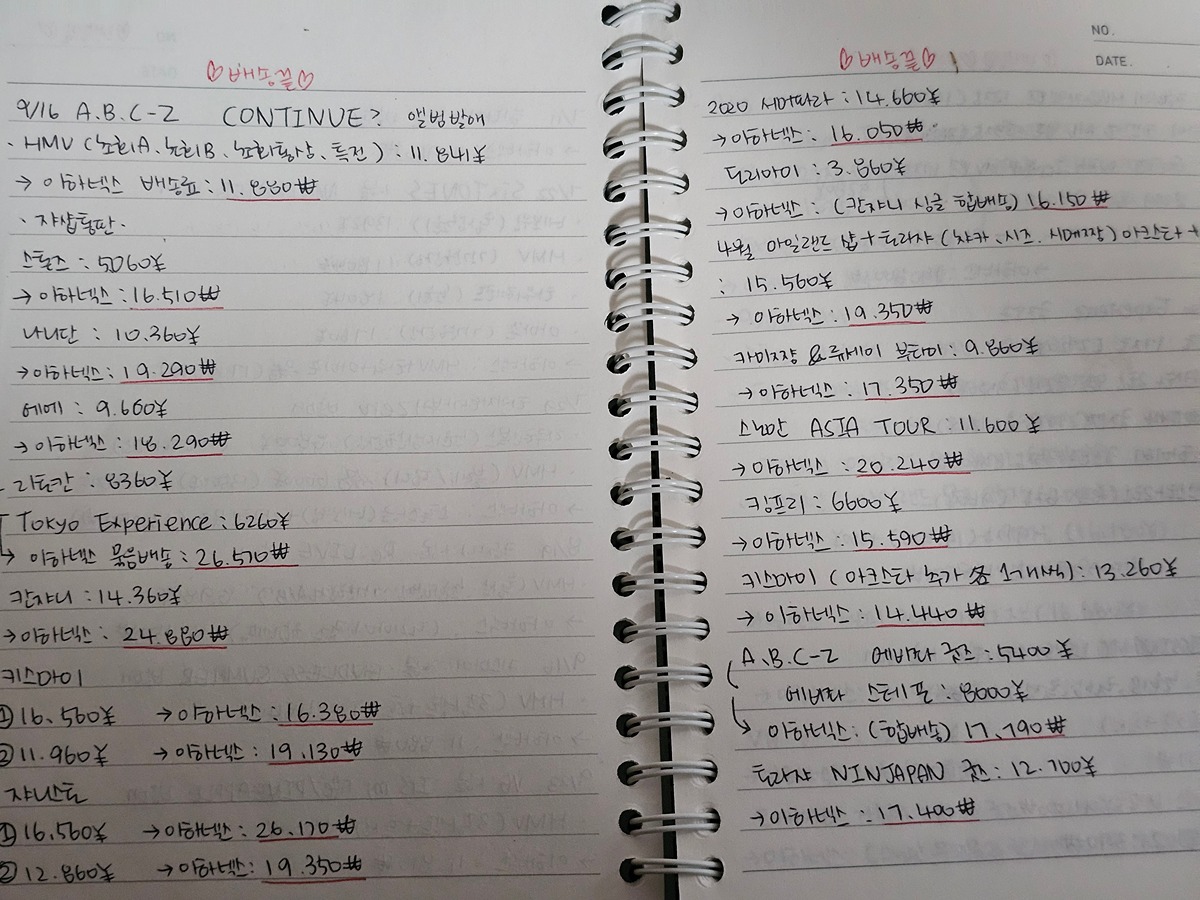 ♡배송끝♡
9/16 A.B.C-Z CONTINUE? 앨범발매
· HMV (초회A、초회B、초회통상、특전) : 11.841¥
→ 이하넥스 배송료 : 11.880₩
· 쟈샵통판 ·
스톤즈 : 5060¥
→ 이하넥스 : 16.510₩
나니단 : 10.360¥
→ 이하넥스 : 19.290₩
에에 : 9.660¥
→ 이하넥스 : 18.290₩
리토칸 : 8360¥
Tokyo Experience : 6260¥
→ 이하넥스 묶음배송 : 26.570₩
칸쟈니 : 14.360¥
→ 이하넥스 : 24.880₩
키스마이
① 16.560¥ → 이하넥스 : 16.380₩
② 11.960¥ → 이하넥스 : 19.130₩
쟈니스토
① 16.560¥ → 이하넥스 : 26.170₩
② 12.860¥ → 이하넥스 : 19.350₩
NO.
DATE.
♡배송끝♡
2020 서머파라 : 14.660¥
→ 이하넥스 : 16.050₩
드리아이 : 3.860¥
→ 이하넥스 : (칸쟈니 싱글 합배송) 16.150₩
4월 아일랜드 샵 + 트라쟈 (챠카、시즈、시메쨩) 아크스타 +
: 15.560¥
→ 이하넥스 : 19.350₩
카미쟝 & 류세이 부타이 : 9.860¥
→ 이하넥스 : 17.350₩
스노만 ASIA TOUR : 11.600¥
→ 이하넥스 : 20.240₩
킹프리 : 6600¥
→ 이하넥스 : 15.590₩
키스마이 (아크스타 추가 各 1개씩) : 13.260¥
→ 이하넥스 : 14.440₩
A.B.C-Z 에비파 굿즈 : 5400¥
에비파 스테포 : 8000¥
→ 이하넥스 : (합배송) 17.790₩
트라쟈 NINJAPAN 굿즈 : 12.700¥
→ 이하넥스 : 17.400₩